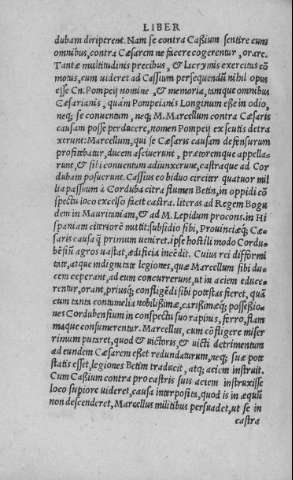 LIBER
dubam diriperent. Nam se contra Caßium sentire cum
omnibus, contra Cæsarem ne facere cogerentur, orare.
Tantæ multitudinis precibus, & lacrymis exercitus cō
motus, cum uideret ad Caßium persequendū nihil opus
esse Cn. Pompeij nomine, & memoria, tamque omnibus
Cæsarianis, quàm Pompeianis Longinum esse in odio,
neq; se conuentum, neq; M. Marcellum contra Cæsaris
causam posse perducere, nomen Pompeij ex scutis detra
xerunt: Marcellum, qui se Cæsaris causam defensurum
profitebatur, ducem asciuerunt, prætoremque appella-
runt, & sibi conuentum adiunxerunt, castraque ad Cor
dubam posuerunt. Caßius eo biduo circiter quatuor mil
lia passuum à Corduba citra flumen Bętim, in oppidi cō
spectu loco excelso facit castra. literas ad Regem Bogu
dem in Mauritaniam, & ad M. Lepidum procons. in Hi
spaniam citeriorē mittit: subsidio sibi, Prouinciæq; Cæ-
saris causa q̄ primum ueniret. ipse hostili modo Cordu-
bēsiū agros uastat, ædificia incēdit. Cuius rei difformi
tate, atque indignitate legiones, quæ Marcellum sibi du
cem ceperant, ad eum concurrerunt, ut in aciem educe-
rentur, orant, priusq; confligēdi sibi potestas fieret, quā
cum tantis contumelia nobilißimæ, carißimæq; possessio
nes Cordubensium in conspectu suo rapinis, ferro, flam
maque consumerentur. Marcellus, cum cōfligere miser
rimum putaret, quod & uictoris, & uicti detrimentum
ad eundem Cæsarem esset redundaturum, neq; suæ pote
statis esset, legiones Bętim traducit, atq; aciem instruit.
Cum Caßium contra pro castris suis aciem instruxisse
loco supiore uideret, causa interposita, quod is in æquū
non descenderet, Marcellus militibus persuadet, ut se in
castra